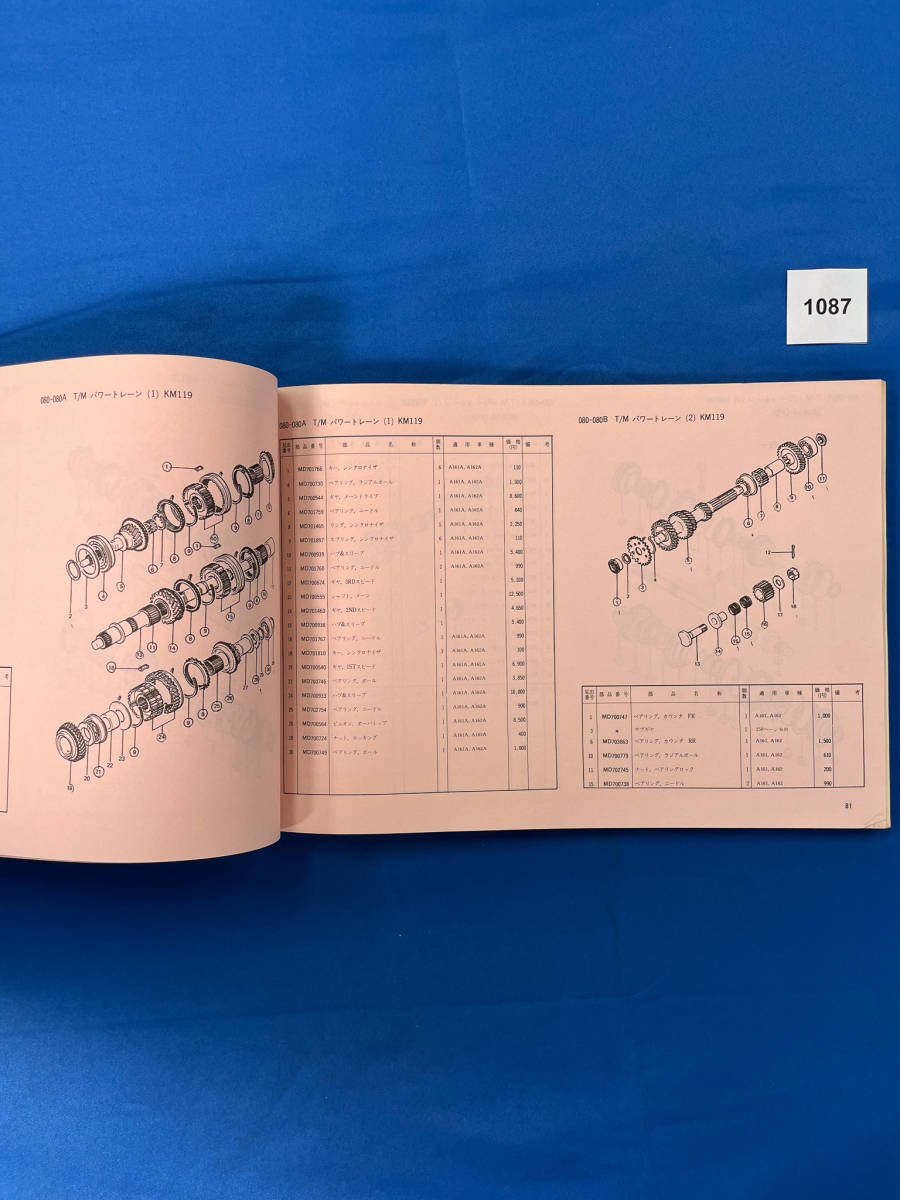 1087
080-080A T/M パワートレーン (1) KM119
考
080-080A T/M パワートレーン (1) KM119
見出番号 部品番号 部品名称 個数 適用車種 価格(円) 備考
1 MD701766 キー, シンクロナイザ 6 A161A, A162A 110
4 MD700730 ベアリング, ラジアルボール 1 A161A, A162A 1,300
MD700544 ギヤ, メーンドライブ 1 A161A, A162A 8,600
6 MD701759 ベアリング, ニードル 1 A161A, A162A 640
8 MD701465 リング, シンクロナイザ 5 A161A, A162A 2,250
9 MD701897 スプリング, シンクロナイザ 6 A161A, A162A 110
10 MD700939 ハブ&スリーブ 1 A161A, A162A 5,400
11 MD701760 ベアリング, ニードル A161A, A162A 990
12 MD700674 ギヤ, 3RDスピード 1 5,100
13 MD700555 シャフト, メーン 1 12,500
14 MD701460 ギヤ, 2NDスピード 1 4,650
15 MD700938 ハブ&スリーブ 1 5,400
MD701767 ベアリング, ニードル 1 A161A, A162A 990
MD701810 キー, シンクロナイザ 3 A161A, A162A 100
MD700540 ギヤ, 1STスピード 1 A161A, A162A 6,900
MD700746 ベアリング, ボール 1 A161A, A162A 3,850
24 MD700933 ハブ&スリーブ 1 A161A, A162A 10,000
25 MD702754 ベアリング, ニードル 1 A161A, A162A 900
26 MD700564 ピニオン, オーバトップ 1 A161A, A162A 8,500
28 MD700724 ナット, ロッキング 1 A161A, A162A 400
30 MD700749 ベアリング, ボール 1 A161A, A162A 1,000
080-080B T/M パワートレーン (2) KM119
見出番号 部品番号 部品名称 個数 適用車種 価格(円) 備考
1 MD700747 ベアリング, カウンタ FR 1 A161, A162 1,000
3 * サブギヤ 1
6 MD703863 ベアリング, カウンタ RR 1 A161, A162 1,500
10 MD700779 ベアリング, ラジアルボール 1 A161, A162 610
11 MD702745 ナット, ベアリングロック 1 A161, A162 200
15 MD700738 ベアリング, ニードル 2 A161, A162 990
81